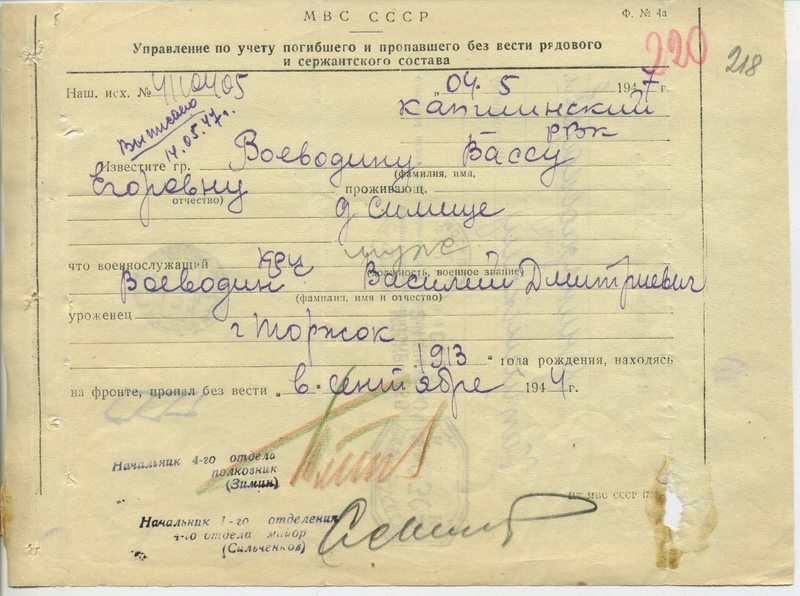 МВС СССР
Ф. № 4а
Управление по учету погибшего и пропавшего без вести рядового
и сержантского состава
220
218
Наш. исх. № 4/10405
„ 04. 5 1947 г.
Выписано
14.05.47г.
РВК
Известите гр. Воеводину Вассу
(фамилия, имя,
Егоровну проживающ.
отчество)
д Симище
муж
что военнослужащий
(должность, военное звание)
Воеводин Василий Дмитриевич
(фамилия, имя и отчество)
уроженец
г Торжок
1913 года рождения, находясь
на фронте, пропал без вести „в сентябре 1944 г.
Начальник 4-го отдела
полковник
(Зимин)
МВС СССР
Начальник 1-го отделения
4-го отдела майор
(Сильченков)